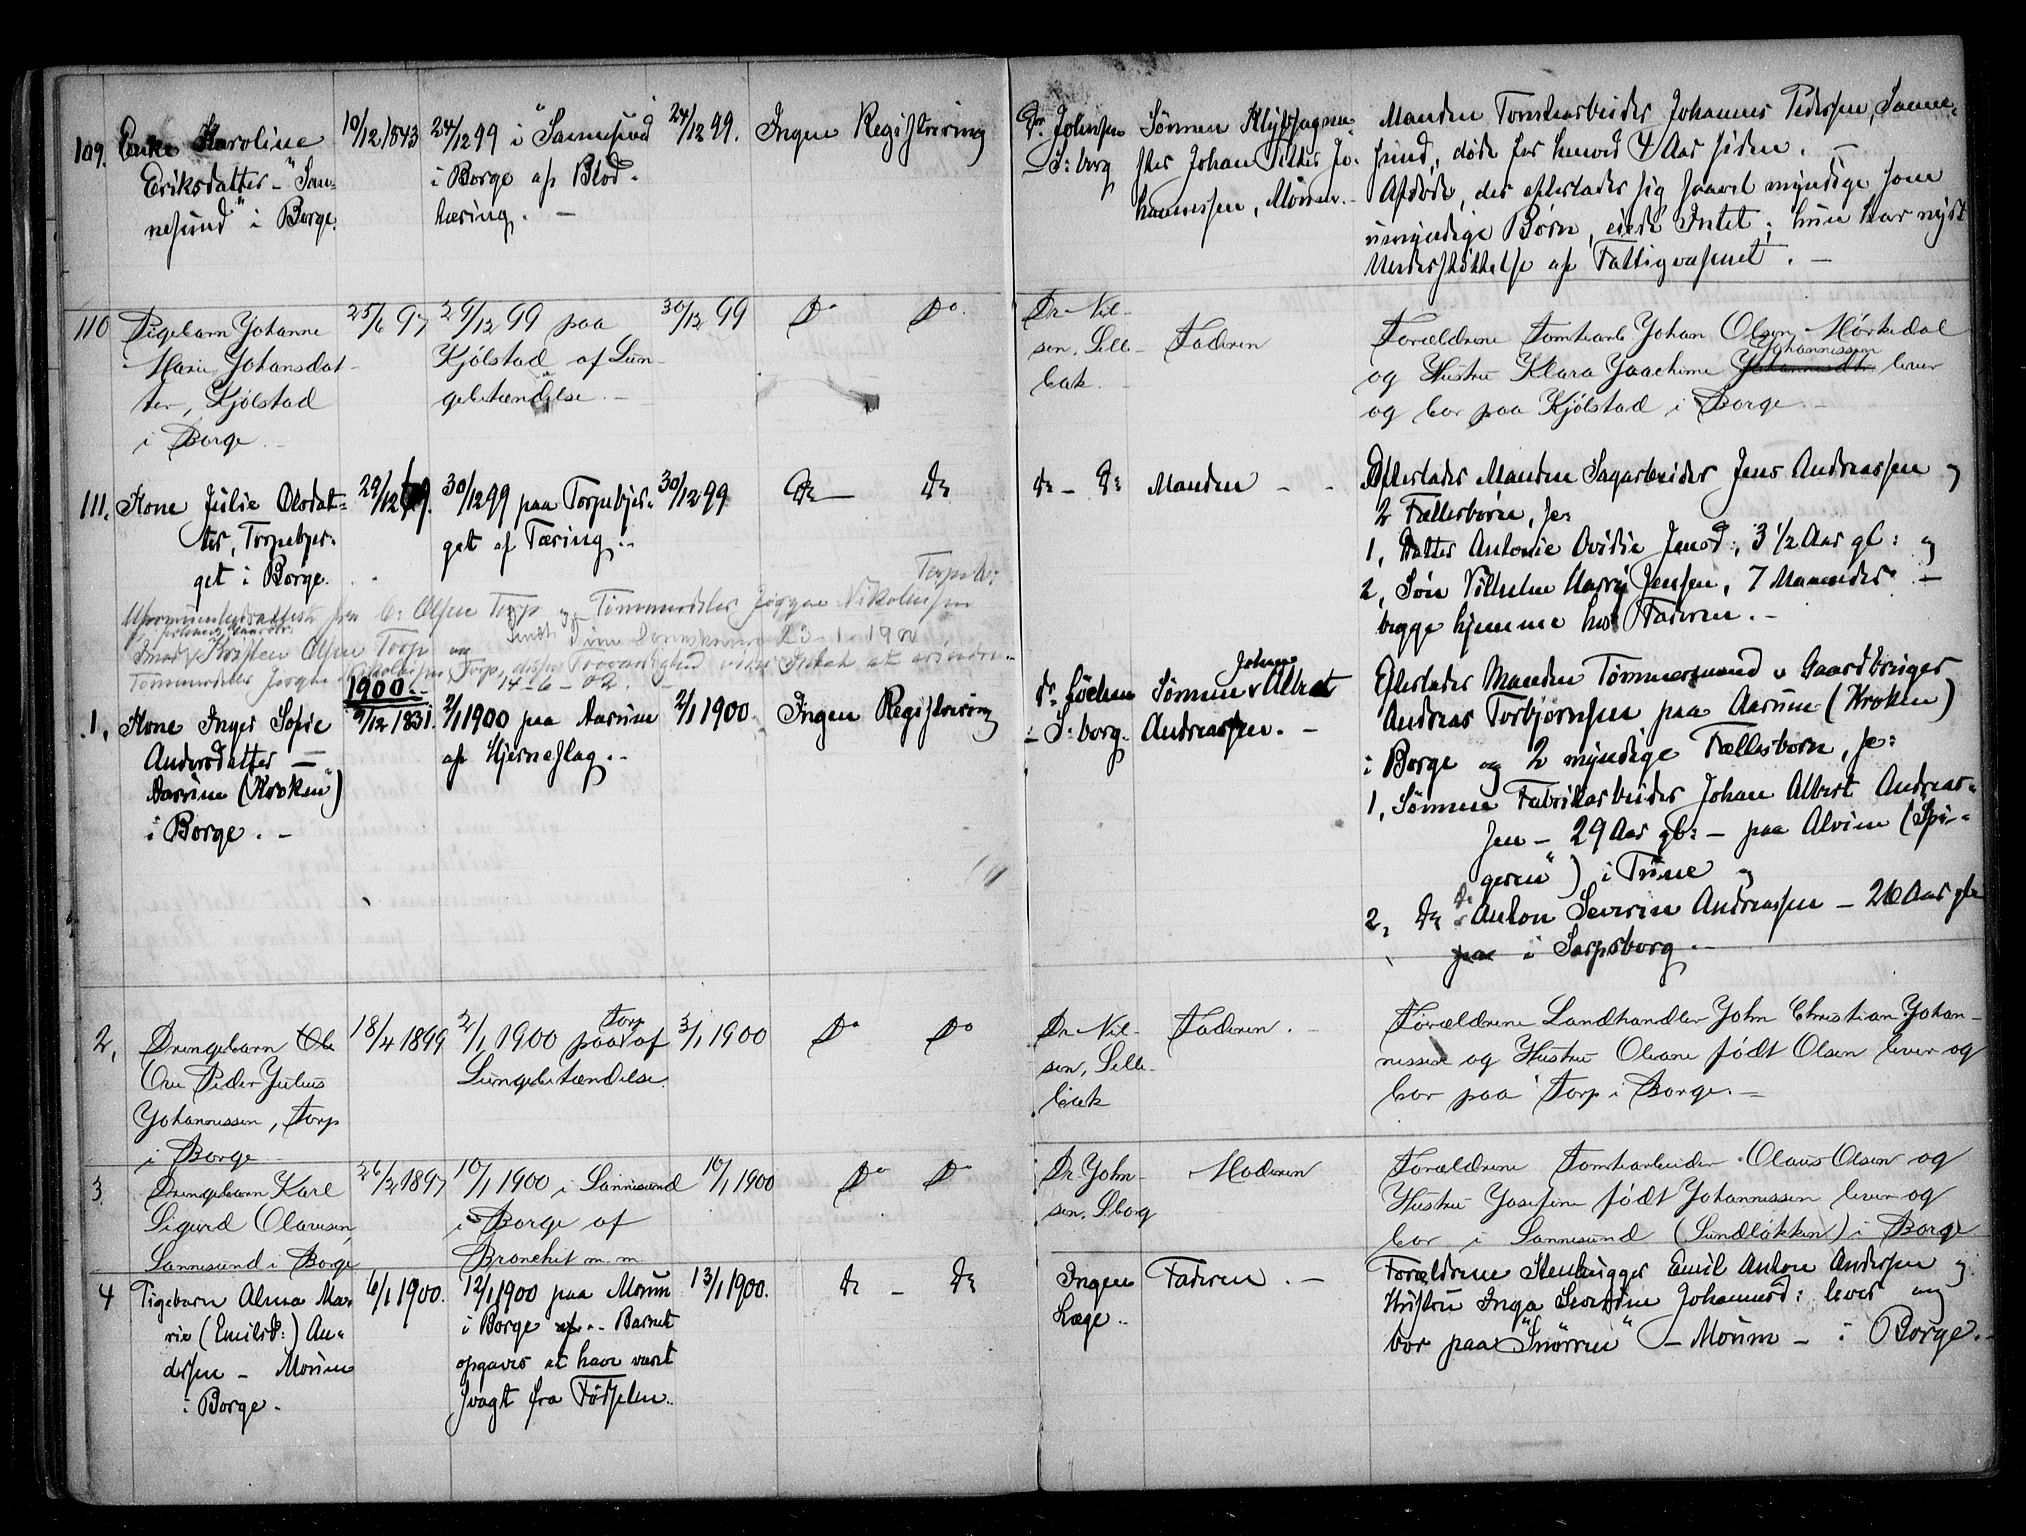 109. Enke Karoline
Eriksdatter - "San-
nesund" i Borge.
10/12 1843
24/12 99 i "Sannesund"
i Borge af Blod-
tæring. -
24/12 99.
Ingen Registrering
Dr. Johnsen
S:borg
Sønnen
Johan Petter Jo-
hannessen, Moum. -
Manden Tomtearbeider Johannes Pedersen, Sanne-
sund, døde for henved 4 Aar siden. -
Afdøde, der efterlader sig saavel myndige som
umyndige Børn, eiede Intet; hun har nydt
Understøttelse af Fattigvæsenet. -
110 Pigebarn Johanne
Marie Johansdat-
ter, Kjølstad
i Borge
25/6 97
29/12 99 paa
Kjølstad af Lun-
gebetændelse. -
30/12 99
Do Do.
Dr. Nil-
sen, Selle-
bak.
Faderen
Forældrene Tomtearb Johan Olsen Mørkedal
og Hustru Klara Joachime Johannessen lever
og bor paa Kjølstad i Borge -
111. Kone Julie Olsdat-
ter, Torpebjer-
get i Borge.
29/12
30/12 99 paa Torpebjer-
get af Tæring. -
30/12 99
Do - Do
Do - Do
Manden - -
Efterlader Manden Sagarbeider Jens Andreassen og
2 Fællesbørn, se:
1, Datter Antonie Ovidie Jensd:, 3 1/2 Aar gl: og
2, Søn Vilhelm Harry Jensen, 7 Maaneder -
begge hjemme hos Faderen. -
Olsen Torp og Tømmerdeler Jørgen Nikolaisen
Torp
23-1-1900
Kristen Olsen Torp og
Tømmerdeler Jørgen Nikolaisen Torp,
14-6-02.
1900.
1, Kone Inger Sofie
Andersdatter -
Aarum (Kroken")
i Borge. -
9/12 1831.
2/1 1900 paa Aarum
af Hjerneslag. -
2/1 1900.
Ingen Registrering
Dr.
S:borg.
Sønnen Johan Albert
Andreassen. -
Efterlader Manden Tømmermand & Gaardbruger
Andreas Torbjørnsen paa Aarum (Kroken)
i Borge og 2 myndige Fællesbørn, se:
1, Sønnen Fabrikarbeider Johan Albert Andreas-
sen - 29 Aar gl: - paa Alvim (Spi-
geren") i Tune og
2, Do Do Anton Severin Andreassen - 26 Aar gl:
paa i Sarpsborg. -
2, Drengebarn Ole
Ove Peder Julius
Johannessen, Torp
i Borge
18/4 1899
2/1 1900 paa Torp af
Lungebetændelse.
3/1 1900
Do Do
Dr. Nil-
sen, Selle-
bak
Faderen. -
Forældrene Landhandler John Christian Johan-
nessen og Hustru Oleane født Olsen lever og
bor paa Torp i Borge. -
3. Drengebarn Karl
Sigurd Olavesen,
Sannesund i Borge
26/2 1897
10/1 1900 i Sannesund
i Borge af
Bronchit m.m
10/1 1900
Do Do
Dr. John-
sen, S.borg
Moderen
Forældrene Tomtearbeider Olaus Olsen og
Hustru Josefine født Johannessen lever og
bor i Sannesund (Sundløkken) i Borge
4 Pigebarn Alma Ma-
rie (Emilsd:) An-
dersen - Moum
i Borge.
6/1 1900.
12/1 1900 paa Moum
i Borge af - Barnet
opgaves at have været
svagt fra Fødselen.
13/1 1900.
Do - Do
Ingen
Læge. -
Faderen. -
Forældrene Stenhugger Emil Anton Andersen og
Hustru Inga Severine Johannesd: lever og
bor paa "Snørren" - Moum - i Borge. -